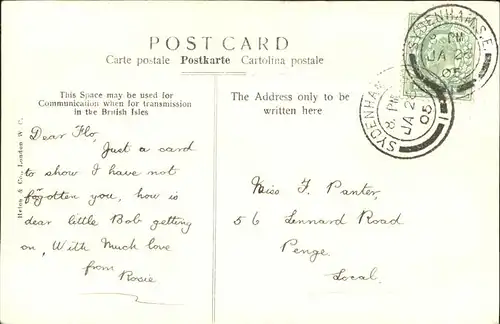 POST CARD
Carte postale Postkarte Cartolina postale
This Space may be used for
Communication when for transmission
in the British Isles
The Address only to be
written here
Dear Flo,
Just a card
to show I have not
forgotten you, how is
dear little Bob getting
on, With Much love
from
Rosie
Miss F. Panter,
56 Lennard Road
Penge.
Local.
SYDENHAM.S.E.
8 PM
JA 28
05
SYDENHAM
8. PM
JA 2
05
& Co., London W.C.